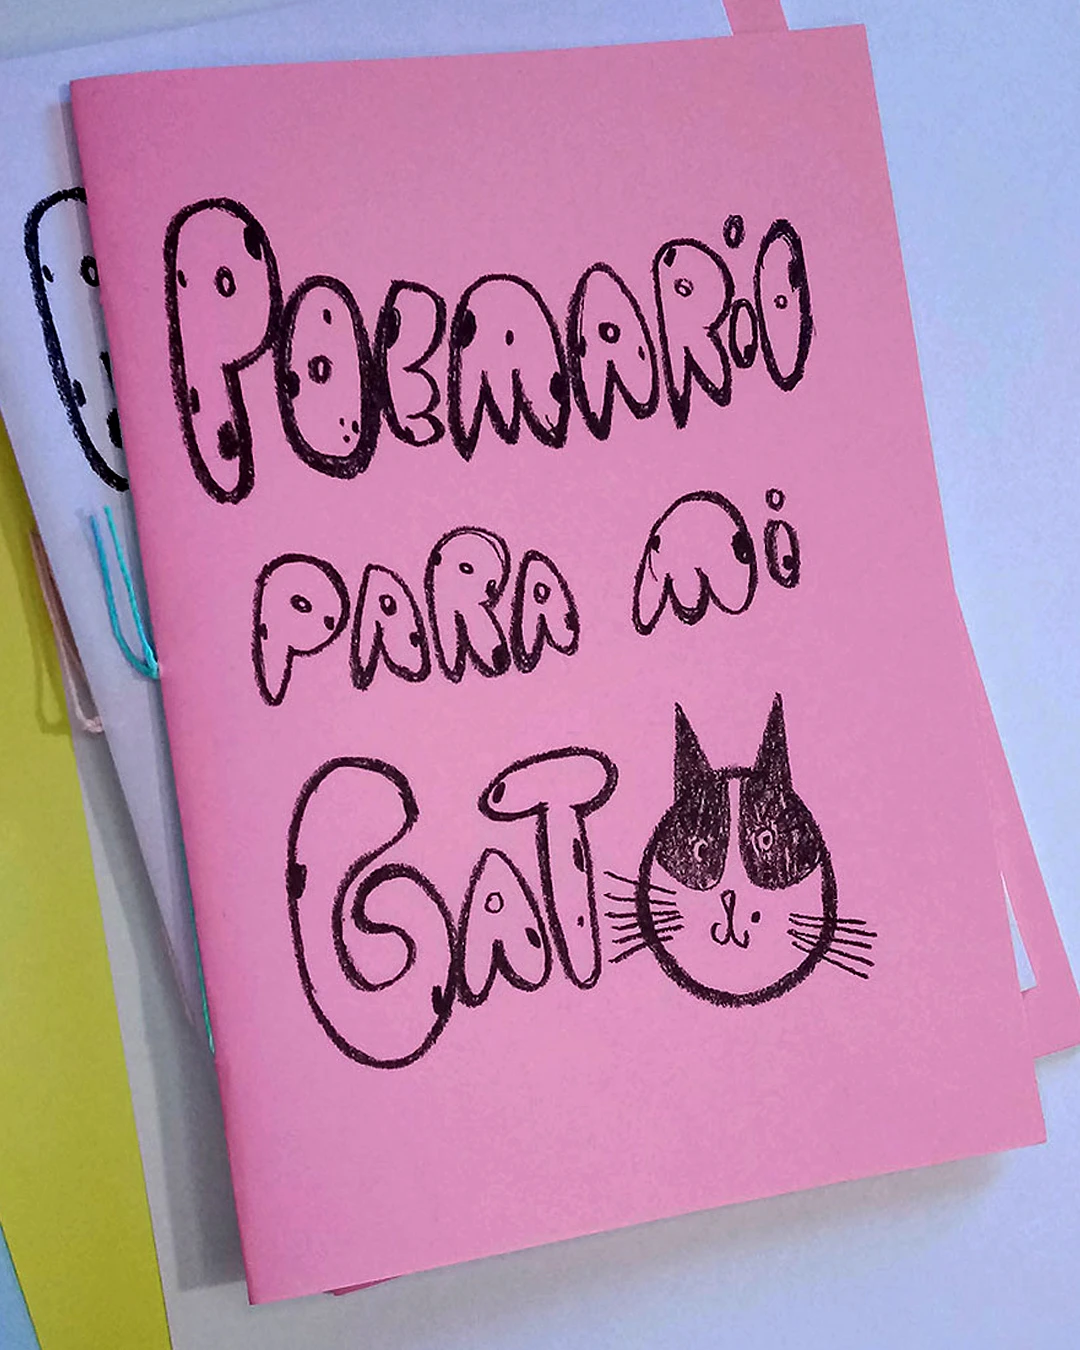 POEMARiO
PARA Mi
GATO